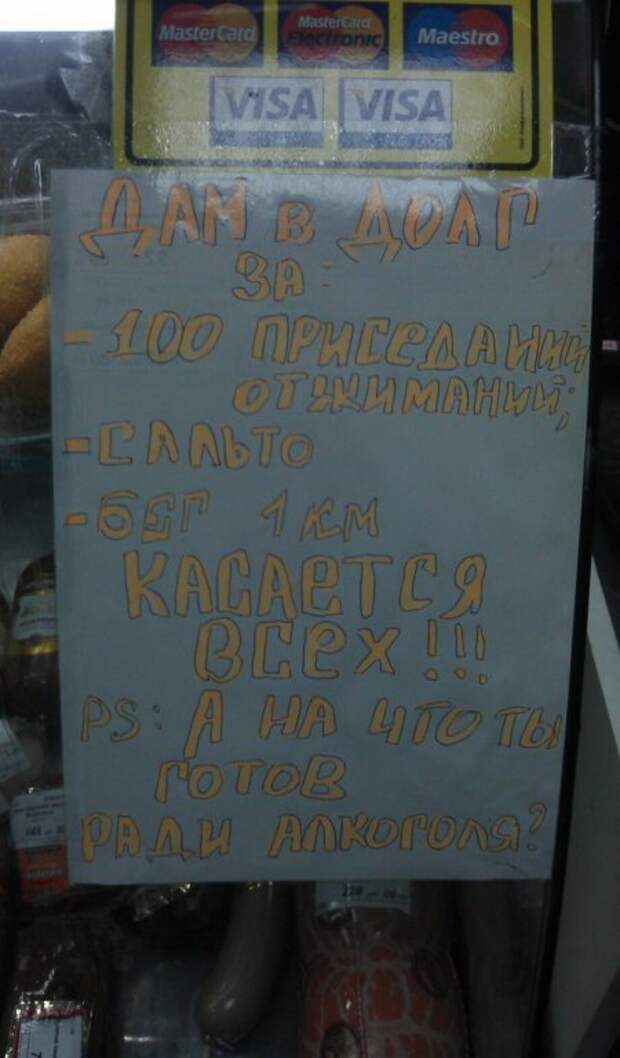 MasterCard MasterCard Electronic Maestro
VISA VISA
ДАМ в ДОЛГ
ЗА:
- 100 ПРИСЕДАНИЙ
ОТЖИМАНИЙ;
- САЛЬТО
- БЕГ 1 КМ
КАСАЕТСЯ
ВСЕХ!!!
PS: А НА ЧТО ТЫ
ГОТОВ
РАДИ АЛКОГОЛЯ?